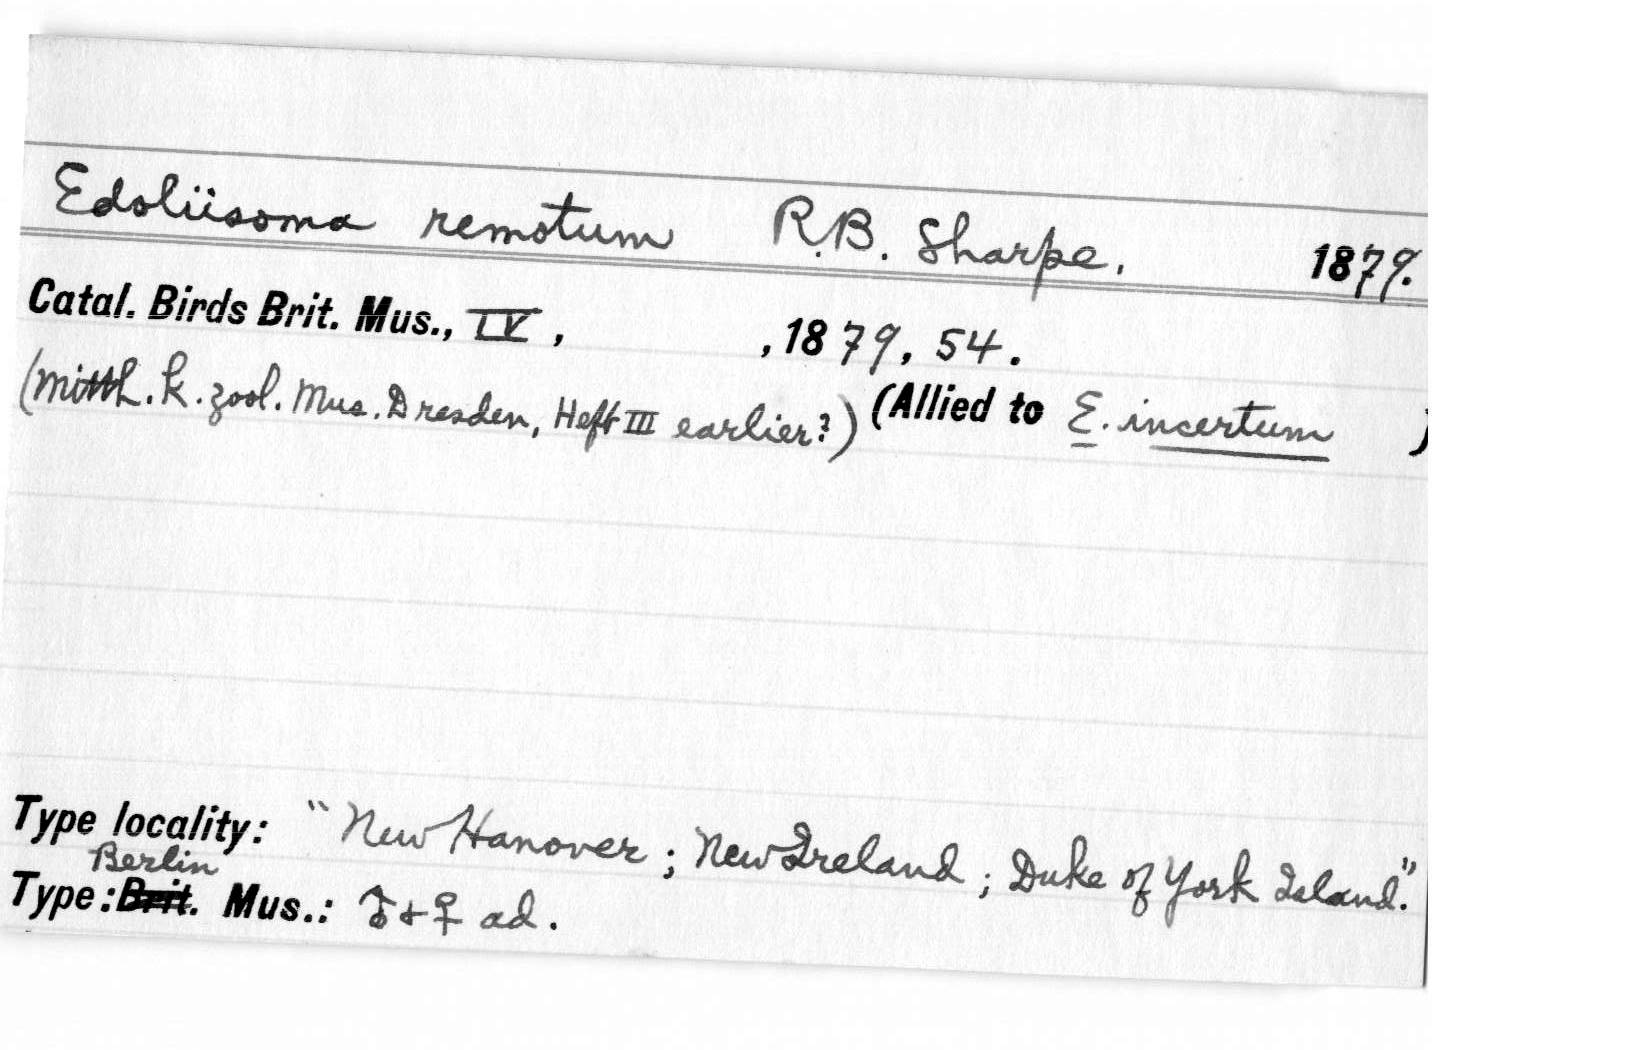 Edoliisoma remotum R.B. Sharpe. 1879.
Catal. Birds Brit. Mus., IV, , 1879, 54.
(Mitth. k. zool. Mus. Dresden, Heft III earlier?) (Allied to E. incertum )
Type locality: "New Hanover; New Ireland; Duke of York Island."
Berlin
Type: Brit. Mus.: ♂ + ♀ ad.